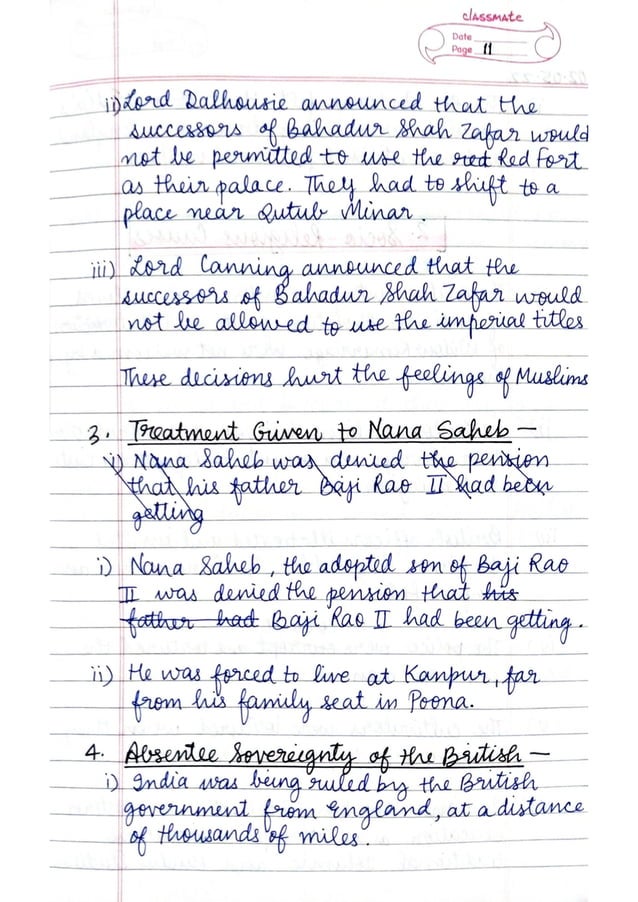 classmate
Date
Page 11
ii) Lord Dalhousie announced that the
successors of Bahadur Shah Zafar would
not be permitted to use the red Red Fort
as their palace. They had to shift to a
place near Qutub Minar.
iii) Lord Canning announced that the
successors of Bahadur Shah Zafar would
not be allowed to use the imperial titles
These decisions hurt the feelings of Muslims
3. Treatment Given to Nana Saheb —
i) Nana Saheb was denied the pension
that his father Baji Rao II had been
getting
i) Nana Saheb, the adopted son of Baji Rao
II was denied the pension that his
father had Baji Rao II had been getting.
ii) He was forced to live at Kanpur, far
from his family seat in Poona.
4. Absentee Sovereignty of the British —
i) India was being ruled by the British
government from England, at a distance
of thousands of miles.